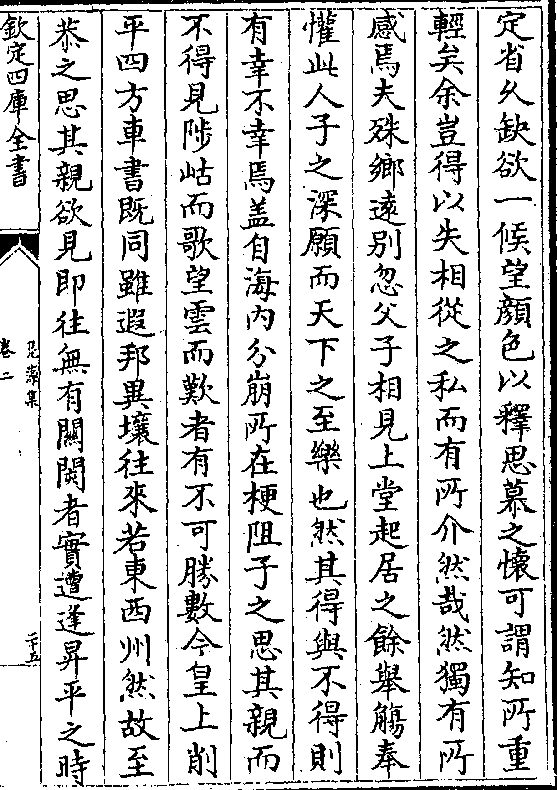 定省久缺欲一候望顔色以釋思慕之懷可謂知所重
輕矣余豈得以失相從之私而有所介然哉然獨有所
感焉夫殊鄉遠别忽父子相見上堂起居之餘舉觴奉
懽此人子之深願而天下之至樂也然其得與不得則
有幸不幸焉盖自海内分崩所在梗阻子之思其親而
不得見陟岵而歌望雲而歎者有不可勝數今皇上削
平四方車書既同雖遐邦異壤往來若東西州然故至
恭之思其親欲見即往無有關閡者實遭逢昇平之時
欽定四庫全書
鳧藻集
卷二
二十五